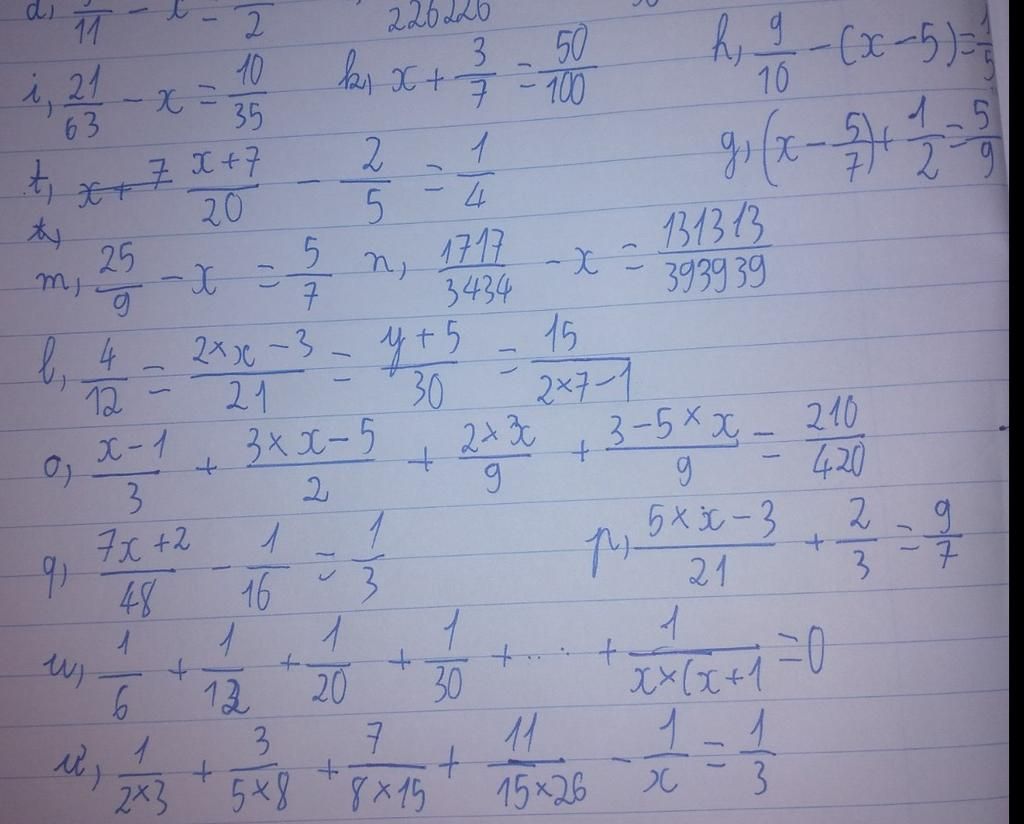 d, /11 - x = /2 226226
i, 21/63 - x = 10/35 k, x + 3/7 = 50/100 h, 9/10 - (x - 5) = 1/5
t, x + 7 x+7/20 - 2/5 = 1/4 g, (x - 5/7) + 1/2 = 5/9
m, 25/9 - x = 5/7 n, 1717/3434 - x = 131313/393939
l, 4/12 = 2×x-3/21 = y+5/30 = 15/2×7-1
o, x-1/3 + 3×x-5/2 + 2×3x/9 + 3-5×x/9 = 210/420
q, 7x+2/48 - 1/16 = 1/3 p, 5×x-3/21 + 2/3 = 9/7
u, 1/6 + 1/12 + 1/20 + 1/30 + .... + 1/x×(x+1 = 0
ư, 1/2×3 + 3/5×8 + 7/8×15 + 11/15×26 - 1/x = 1/3